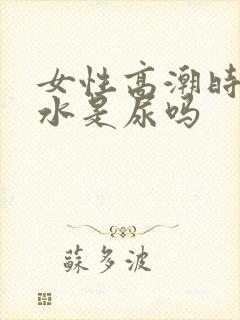 女性高潮时
水是尿吗
蘇多波